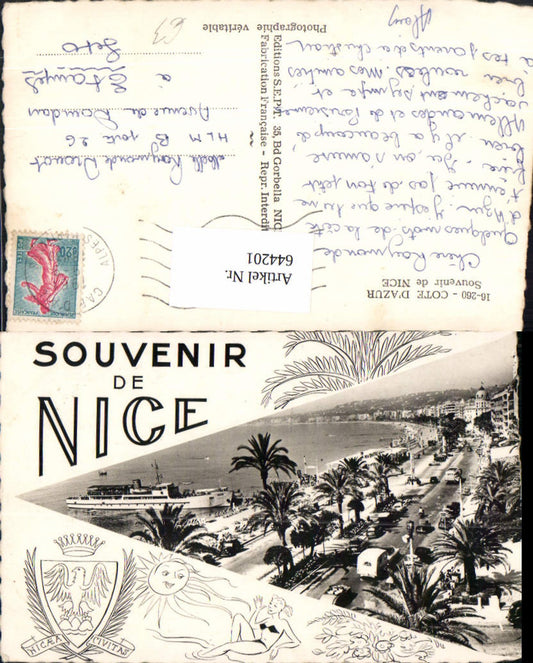 Chère Raymonde
Quelques mots de la côte
d'Azur. J'espère que tu ne
t'ennuie pas de ton petit
Ici on s'amuse
bien. il y a beaucoup d'
Allemandes et de Parisiennes
sympa et
Mes amitiés
à tes parents et à christian
Alain
16-260 - COTE D'AZUR
Souvenir de NICE
Editions S.E.P.T. 35, Bd Gorbella NIC
Fabrication Française - Repr. Interdit
Photographie véritable
Artikel Nr.
644201
Raymonde
HLM B porte 26
Avenue du
à
Etampes
S et O
€3
0,20
CA
ALPES
SOUVENIR
DE
NICE
NICÆA CIVITAS